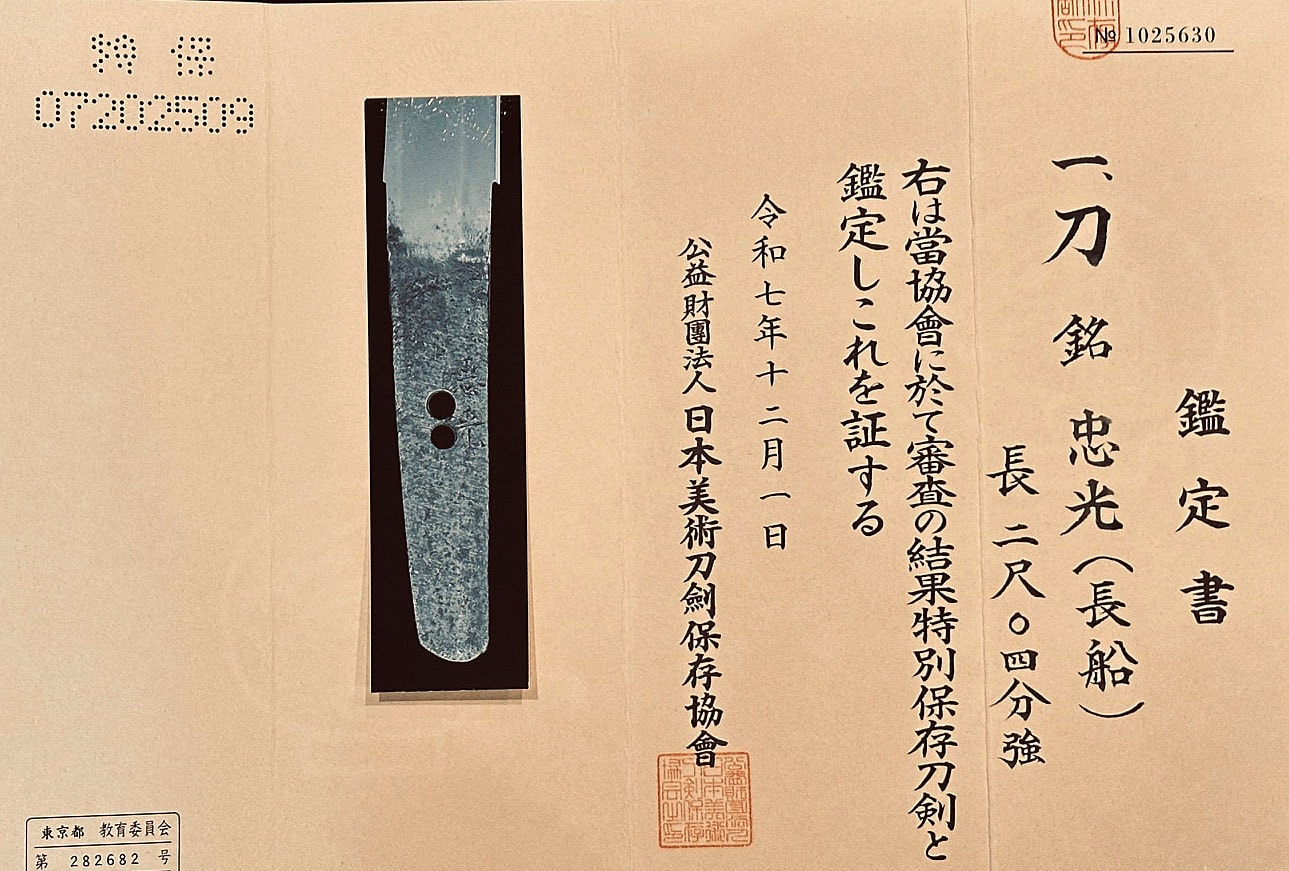 № 1025630
鑑定書
一、刀 銘 忠光（長船）
長 二尺〇四分強
右は當協會に於て審査の結果特別保存刀剣と
鑑定しこれを証する
令和七年十二月一日
公益財團法人 日本美術刀劍保存協會
特保
07202509
東京都 教育委員会
第 282682 号
忠光